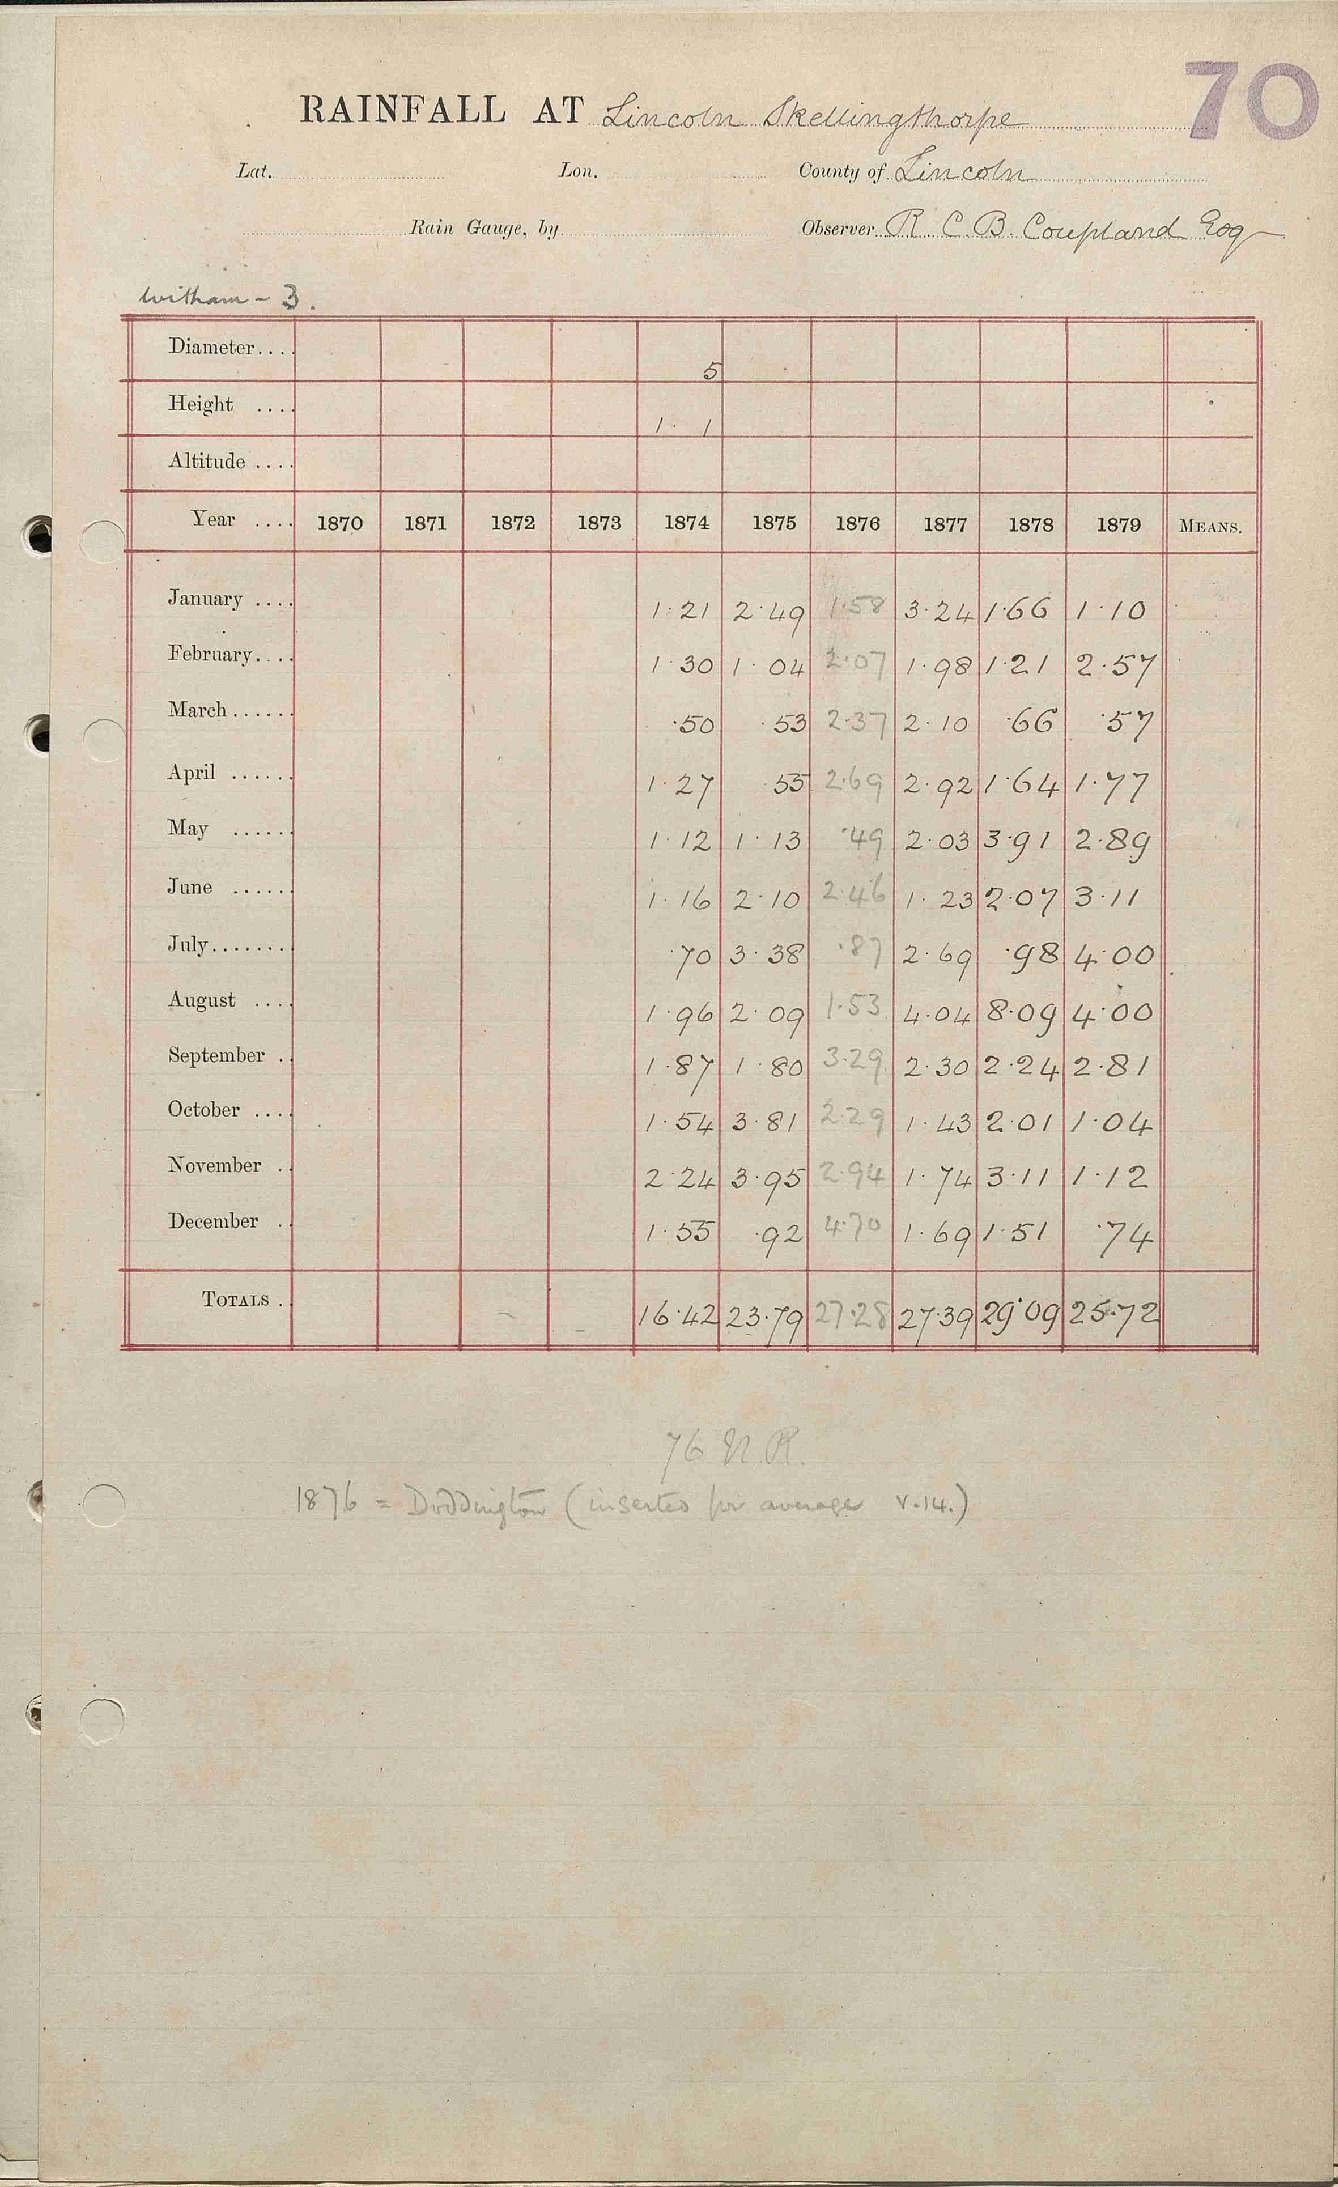 70
RAINFALL AT Lincoln Skellingthorpe
Lat. Lon. County of Lincoln
Rain Gauge, by Observer R. C. B. Coupland Esq
Witham - 3.
Diameter.... 5
Height .... 1. 1
Altitude ....
Year .... 1870 1871 1872 1873 1874 1875 1876 1877 1878 1879 MEANS.
January .... 1.21 2.49 1.58 3.24 1.66 1.10
February.... 1.30 1.04 2.07 1.98 1.21 2.57
March...... .50 .53 2.37 2.10 .66 .57
April ...... 1.27 .55 2.69 2.92 1.64 1.77
May ...... 1.12 1.13 .49 2.03 3.91 2.89
June ...... 1.16 2.10 2.46 1.23 2.07 3.11
July........ .70 3.38 .87 2.69 .98 4.00
August .... 1.96 2.09 1.53 4.04 8.09 4.00
September . 1.87 1.80 3.29 2.30 2.24 2.81
October .... 1.54 3.81 2.29 1.43 2.01 1.04
November . 2.24 3.95 2.94 1.74 3.11 1.12
December . 1.55 .92 4.70 1.69 1.51 .74
TOTALS . 16.42 23.79 27.28 27.39 29.09 25.72
76 N.R.
1876 = Doddington (inserted for average v.14.)